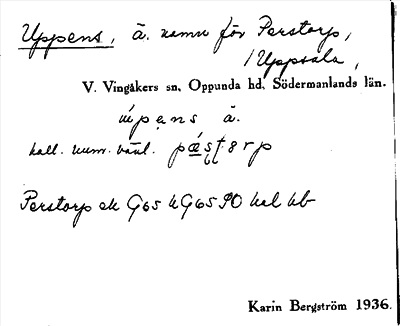 Uppens, ä. namn för Perstorp,
/Uppsala,
V. Vingåkers sn, Oppunda hd, Södermanlands län.
ä.
kall. num. vanl.
Perstorp ek G65 kG65 90 hal hb
Karin Bergström 1936.